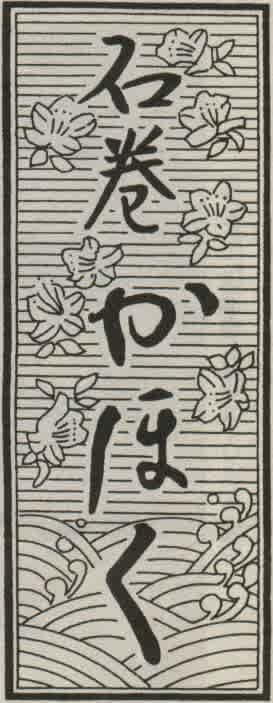 石巻かほく